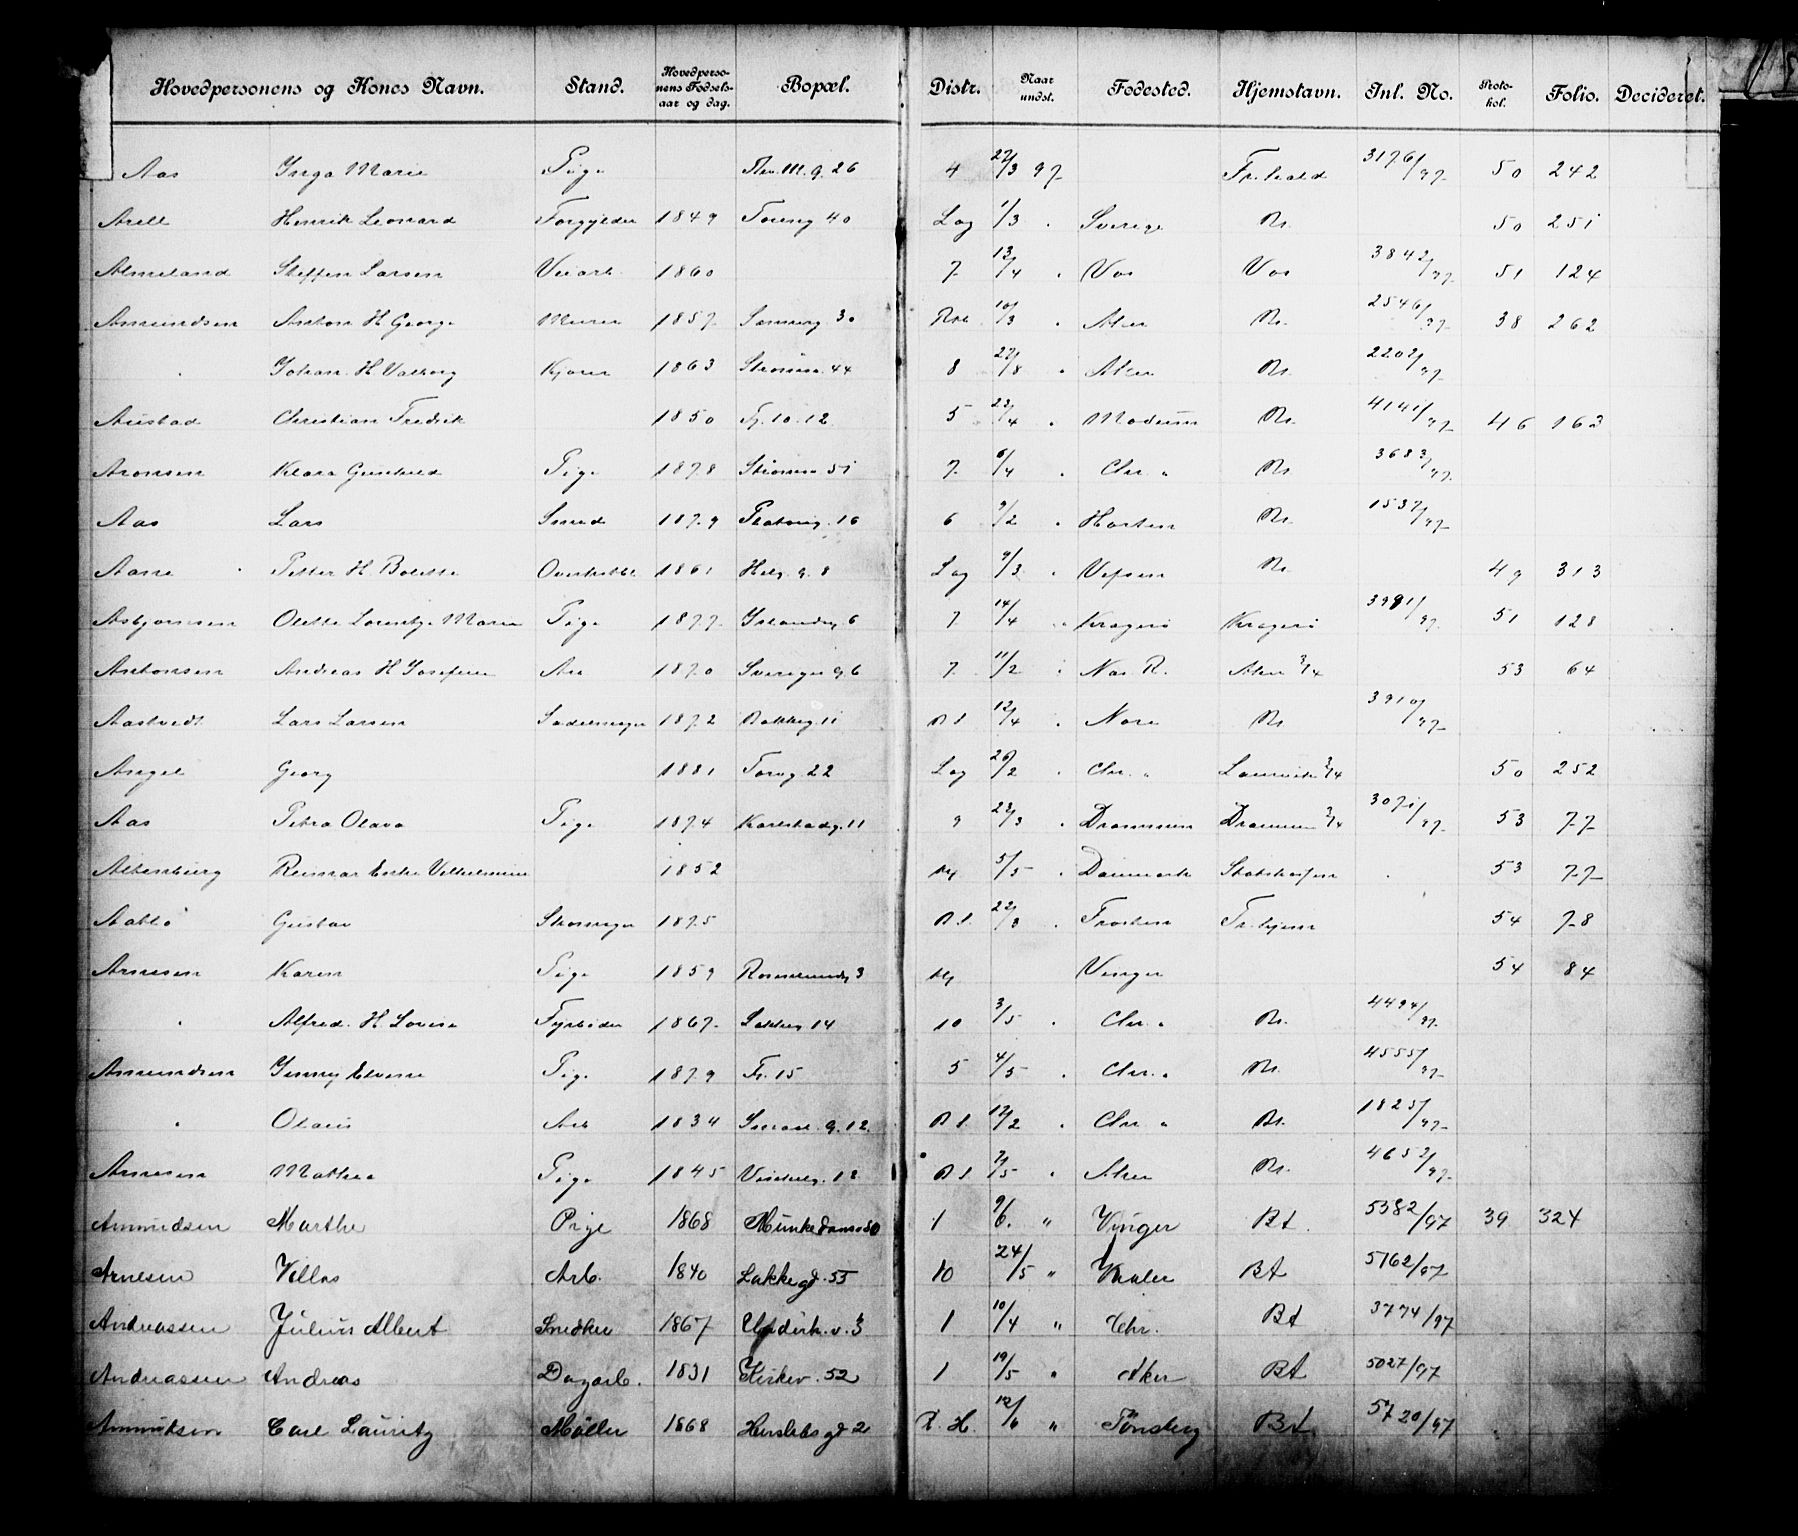 Hovedpersonens og Kones Navn. Stand. Hovedpersonens Fødselsaar og dag. Bopæl. Distr. Naar undst. Fødested. Hjemstavn. Inl. No. Protokol. Folio. Decideret.
Aas Inga Marie Pige 26 4 27/3 97 Fr.hald 3176/97 50 242
Arell Henrik Leonard Forgylder 1849 Toreng 40 Log 1/3 " Sverige Bt. 50 251
Almeland Steffen Larsen Veiarb. 1860 7 12/4 " Vos Vos 3842/97 51 124
Amundsen Anton H George Murer 1857 30 10/3 " Aker Bt. 2546/97 38 262
" Johan H Valborg Kjører 1863 Strømsv. 44 8 27/8 " Aker Bt. 2202/97
Austad Christian Fredrik 1850 Fj. 10. 12 5 23/4 " Modum Bt. 4141/97 46 163
Aronsen Klara Gunhild Pige 1878 Strømsv 51 7 6/4 " Chr. " Bt. 3683/97
Aas Lars Smed 1879 16 6 9/2 " Horten Bt. 1537/97
Aane Petter H Bolette 1861 Helg. g. 8 Log 9/3 " Vefsen Bt. 49 313
Asbjørnsen Olette Lorentze Marie Pige 1877 Islandsg 6 7 14/4 " Kragerø Kragerø 3991/97 51 128
Antonsen Andreas H Josefine Arb 1870 Sveriges g. 6 7 11/2 " Nas R. Aker 3/4 53 64
Aastvedt Lars Larsen Sadelmager 1872 Bakkeg. 11 B.l. 12/4 " Nore Bt. 3910/97
Angel Georg 1881 Torvg. 22 Log 26/2 " Chr. " Laurvik 3/4 50 252
Aas Petra Olava Pige 1874 Karlstadg. 11 9 23/3 " Drammen Drammen 3/4 3071/97 53 77
Altenburg Reimar Vilhelmine 1852 5/5 " Danmark Statskassen 53 77
Aatlo Gustav Skomager 1875 B.l. 22/3 " Frosten Tr.hjem 54 78
Arnesen Karen Pige 1859 Rosenlundg 3 Vinger 54 84
" Alfred H Lovise Fyrbøder 1867 Lakkeg 14 10 3/5 " Chr. " Bt. 4494/97
Amundsen Jenny Elvine Pige 1879 Fr. 15 5 4/5 " Chr. " Bt. 4555/97
" Olaus Arb 1834 g. 12 B.l. 12/2 " Chr " Bt. 1825/97
Arnesen Mathea Pige 1845 12 B.l. 7/5 " Aker Bt. 4652/97
Amundsen Marthe Pige 1868 Munkedamsv 50 1 9/6 " Vinger Bt. 5382/97 39 324
Arnesen Vellas Arb. 1840 Lakkegd. 55 10 24/5 " Vaaler Bt 5162/97
Andreassen Julius Albert Snedker 1867 v. 3 1 10/4 " Chr. Bt 3774/97
Andreassen Andreas Dagarb. 1831 Kirkev. 52 1 19/5 " Aker Bt 5027/97
Amundsen Carl Lauritz Møller 1868 Herslebs gd 2 R. H. 12/6 " Tønsberg Bt 5720/97